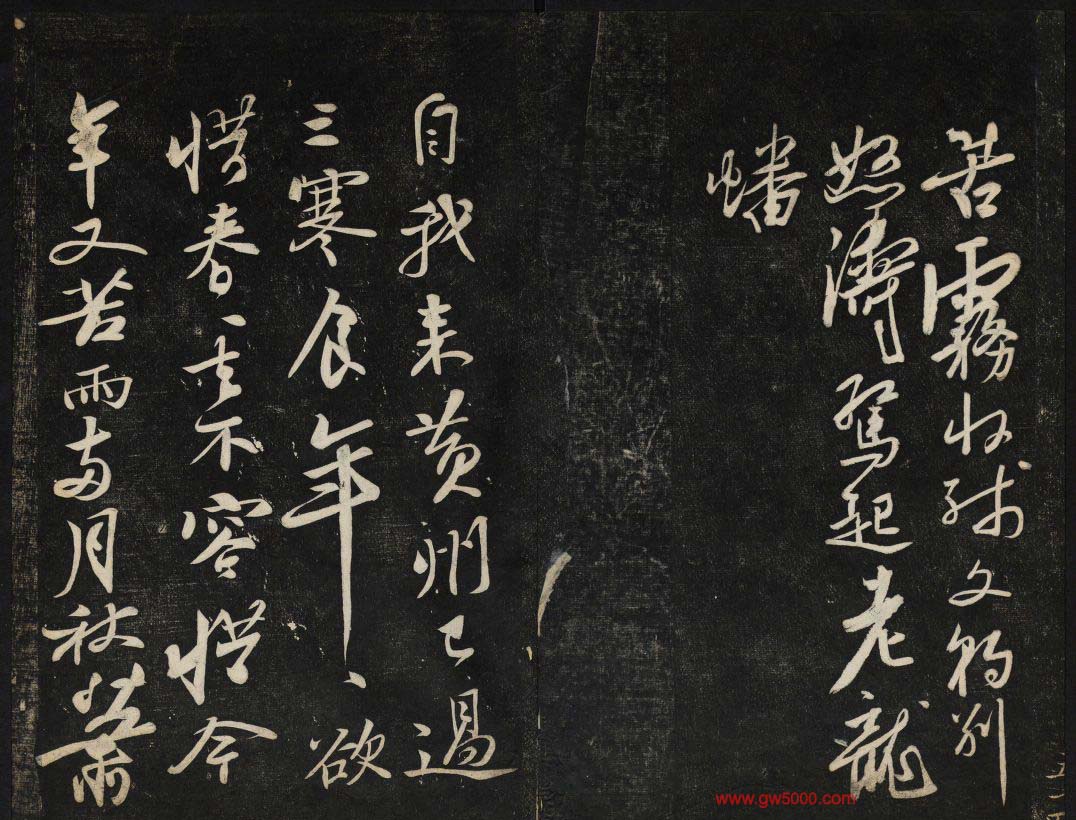 苦霧收殘文豹别
怒濤驚起老龍
蟠
自我来黄州已過
三寒食年、欲
惜春、去不容惜今
年又苦雨兩月秋蕭
www.gw5000.com